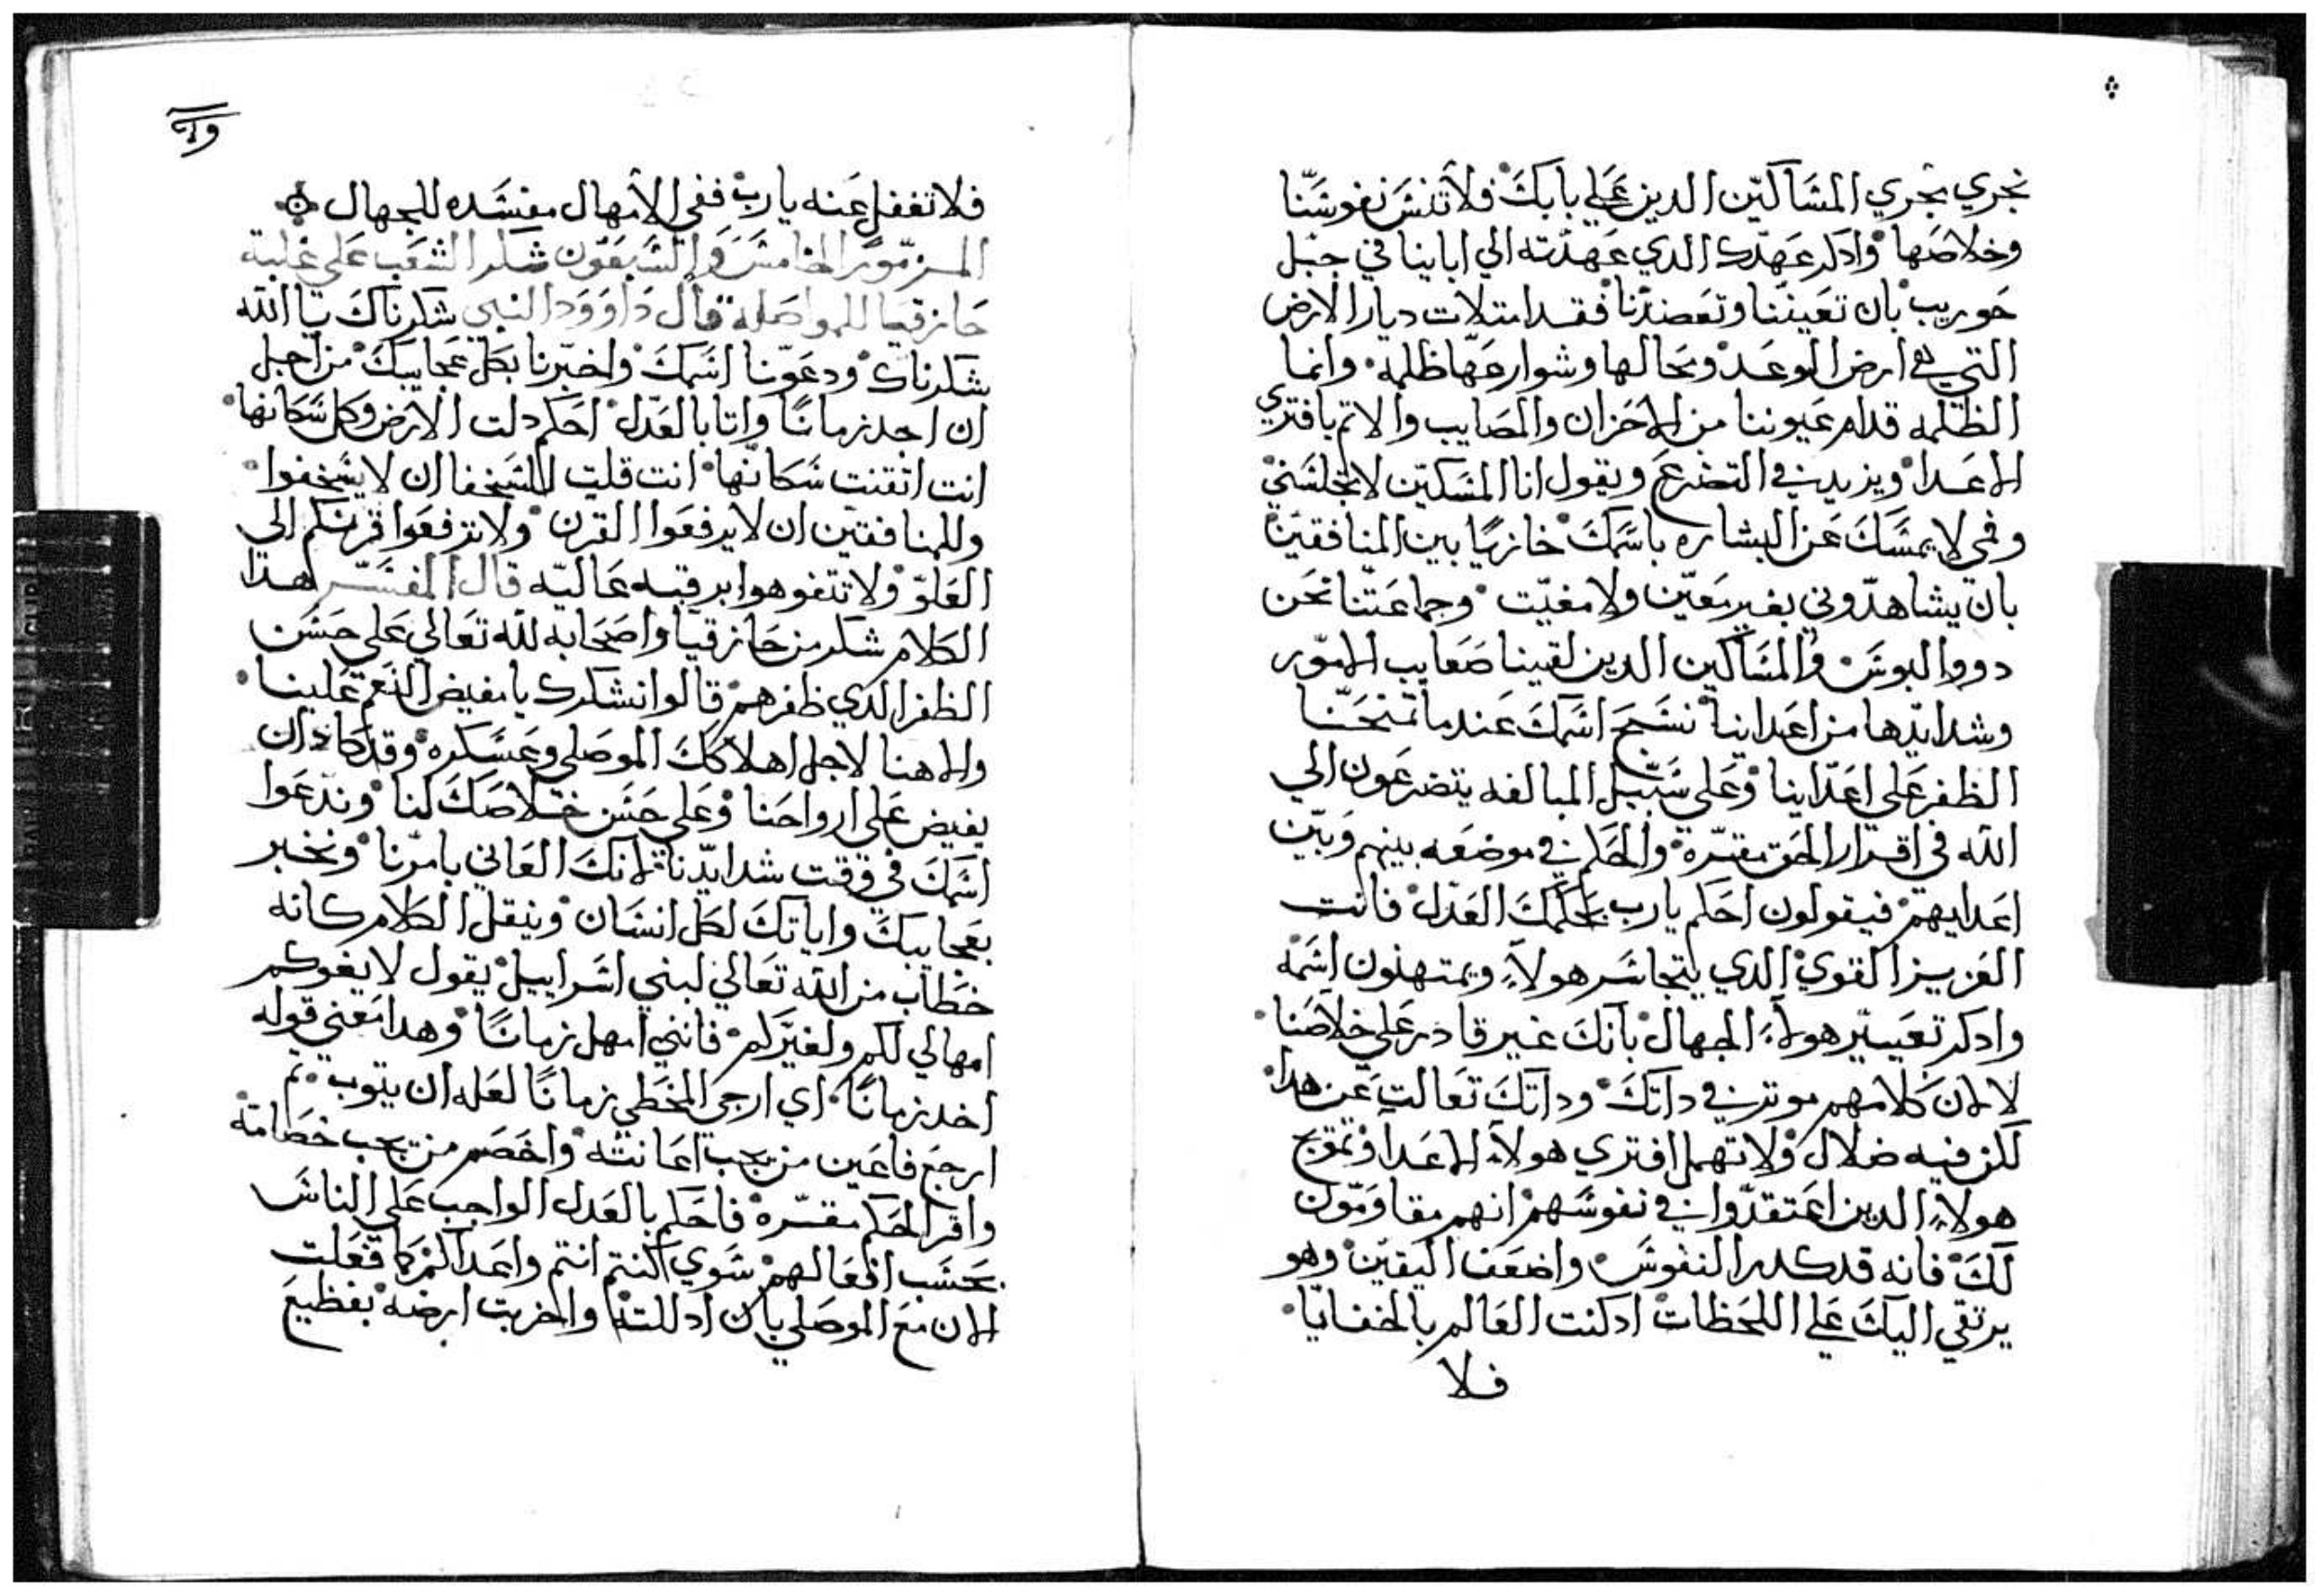 نجري مجري المساكين الدين علي بابك فلا تنس نفوسنا
وخلاصها وادكر عهدك الدي عهدته الي اباينا في جبل
حوريب بان تعيننا وتعضدنا فقد امتلات ديار الارض
التي هي ارض الوعد ومحالها وشوارعها ظلمة وانما
الظلمه قدام عيوننا من الاحزان والمصايب والاتم بافتري
الاعدا ويزيد في التضرع ويقول انا المسكين لا تخلسني
وفمي لا يمسك عن البشاره باسمك خازيا بين المنافقين
بان يشاهدوني بغير معين ولا مغيت وجماعتنا نحن
دووا البوس والمساكين الدين لقينا صعايب الامور
وشدايدها من اعداينا نسبح اسمك عندما تمنحنا
الظفر علي اعداينا وعلي سبيل المبالغه يتضرعون الي
الله في اقرار الحق مقره والحكم في موضعه بينهم وبين
اعدايهم فيقولون احكم يارب بحكمك العدل فانت
العزيز القوي الدي يتجاسر هولاء ويمتهنون اسمه
وادكر تعيير هولاء الجهال بانك غير قادر علي خلاصنا
لا لان كلامهم موتر في داتك وداتك تعالت عن هدا
لكن فيه ضلال ولا تهمل افتري هولاء الاعدا وتموج
هولاء الدين اعتقدوا في نفوسهم انهم مقاومون
لك فانه قد كدر النفوس واضعف اليقين وهو
يرتقي اليك علي اللحظات ادكنت العالم بالخفايا
فلا
فلا تغفل عنه يارب ففي الامهال مفسده للجهال
المزمور الخامس والسبعون شكر الشعب علي غلبة
حازقيا للمواصلة قال داوود النبي شكرناك يا الله
شكرناك ودعونا اسمك واخبرنا بكل عجايبك من اجل
ان اجد زمانا وانا بالعدل احكم دلت الارض وكل سكانها
انت اتقنت سكانها انت قلت للسخفا ان لا يسخفوا
وللمنافقين ان لا يرفعوا القرن ولا ترفعوا قرنكم الي
العلو ولا تتفوهوا برقبه عاليه قال المفسر هدا
الكلام شكر من حازقيا واصحابه لله تعالي علي حسن
الظفر الدي ظفرهم قالوا نشكرك يا مفيض النعم علينا
والاهنا لاجل اهلاكك الموصلي وعسكره وقد كاد ان
يفيض علي ارواحنا وعلي حسن خلاصك لنا وندعوا
اسمك في وقت شدايدنا لانك العاني بامرنا ونخبر
بعجايبك واياتك لكل انسان وينقل الكلام كانه
خطاب من الله تعالي لبني اسراييل يقول لا يغوكم
امهالي لكم ولغيركم فانني امهل زمانا وهدا معني قوله
اخد زمانا اي ارجي المخطي زمانا لعله ان يتوب تم
ارجع فاعين من يجب اعانته واخصم من يجب خصامة
واقر الحكم مقره فاحكم بالعدل الواجب علي الناس
بحسب افعالهم سوي كنتم انتم واعداكم كما فعلت
الان مع الموصلي بان ادللته واخربت ارضه بفظيع